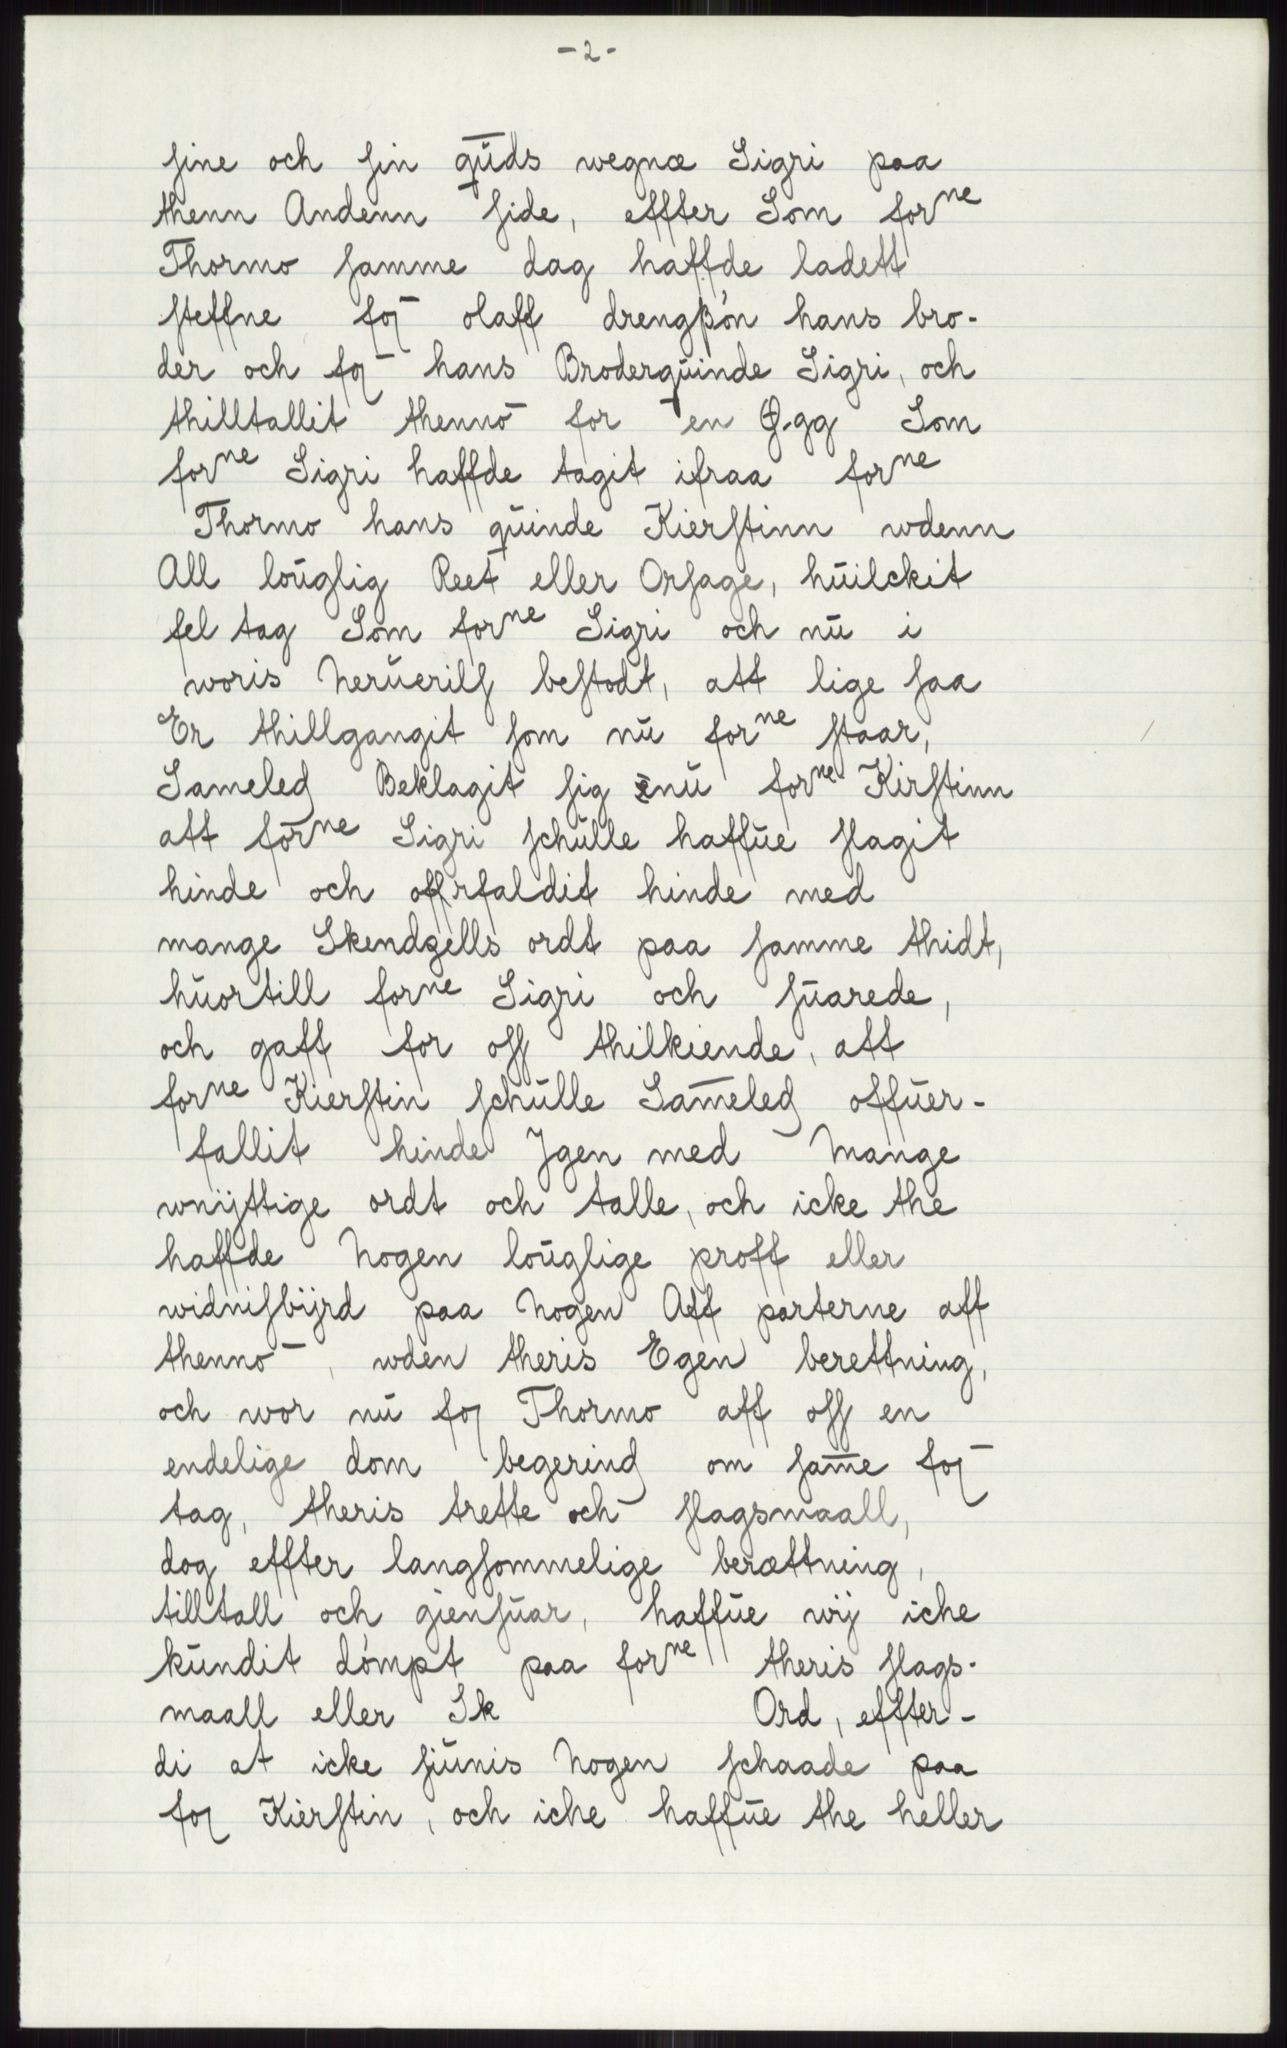 - 2 -
sine och sin quds wegnæ Sigri paa
thenn Andenn side, effter Som forne
Thormo samme dag haffde ladett
steffne for olaff drengßón hans bro-
der och for hans Broderquinde Sigri, och
thilltallit thennó for en Ø.gg Som
forne Sigri haffde tagit ifraa forne
Thormo hans quinde Kierstinn wdenn
All louglig Reet eller Orsage, huilckit
fel tag Som forne Sigri och nu i
woris neruerilß bestodt, att lige saa
Er thillgangit som nu forne staar,
Sameled Beklagit sig nu forne Kirstinn
att forne Sigri schulle haffue slagit
hinde och offrfaldit hinde med
mange Skendzells ordt paa samme thidt,
huortill forne Sigri och suarede,
och gaff for oss thilkiende, att
forne Kierstin schulle Sameled offuer-
fallit hinde Jgen med Mange
wnyttige ordt och talle, och icke the
haffde Nogen louglige proff eller
widnisbijrd paa Nogen Aff parterne aff
thenno, wden theris Egen berettning,
och wor nu for Thormo aff oss en
endelige dom begerind om same for
tag, theris trette och slagsmaall,
dog effter langsommelige berættning,
tilltall och giensuar, haffue wij iche
kundit dómpt paa forne theris slags-
maall eller Sk Ord, effter-
di at icke siunis Nogen schaade paa
for Kierstin, och iche haffue the heller